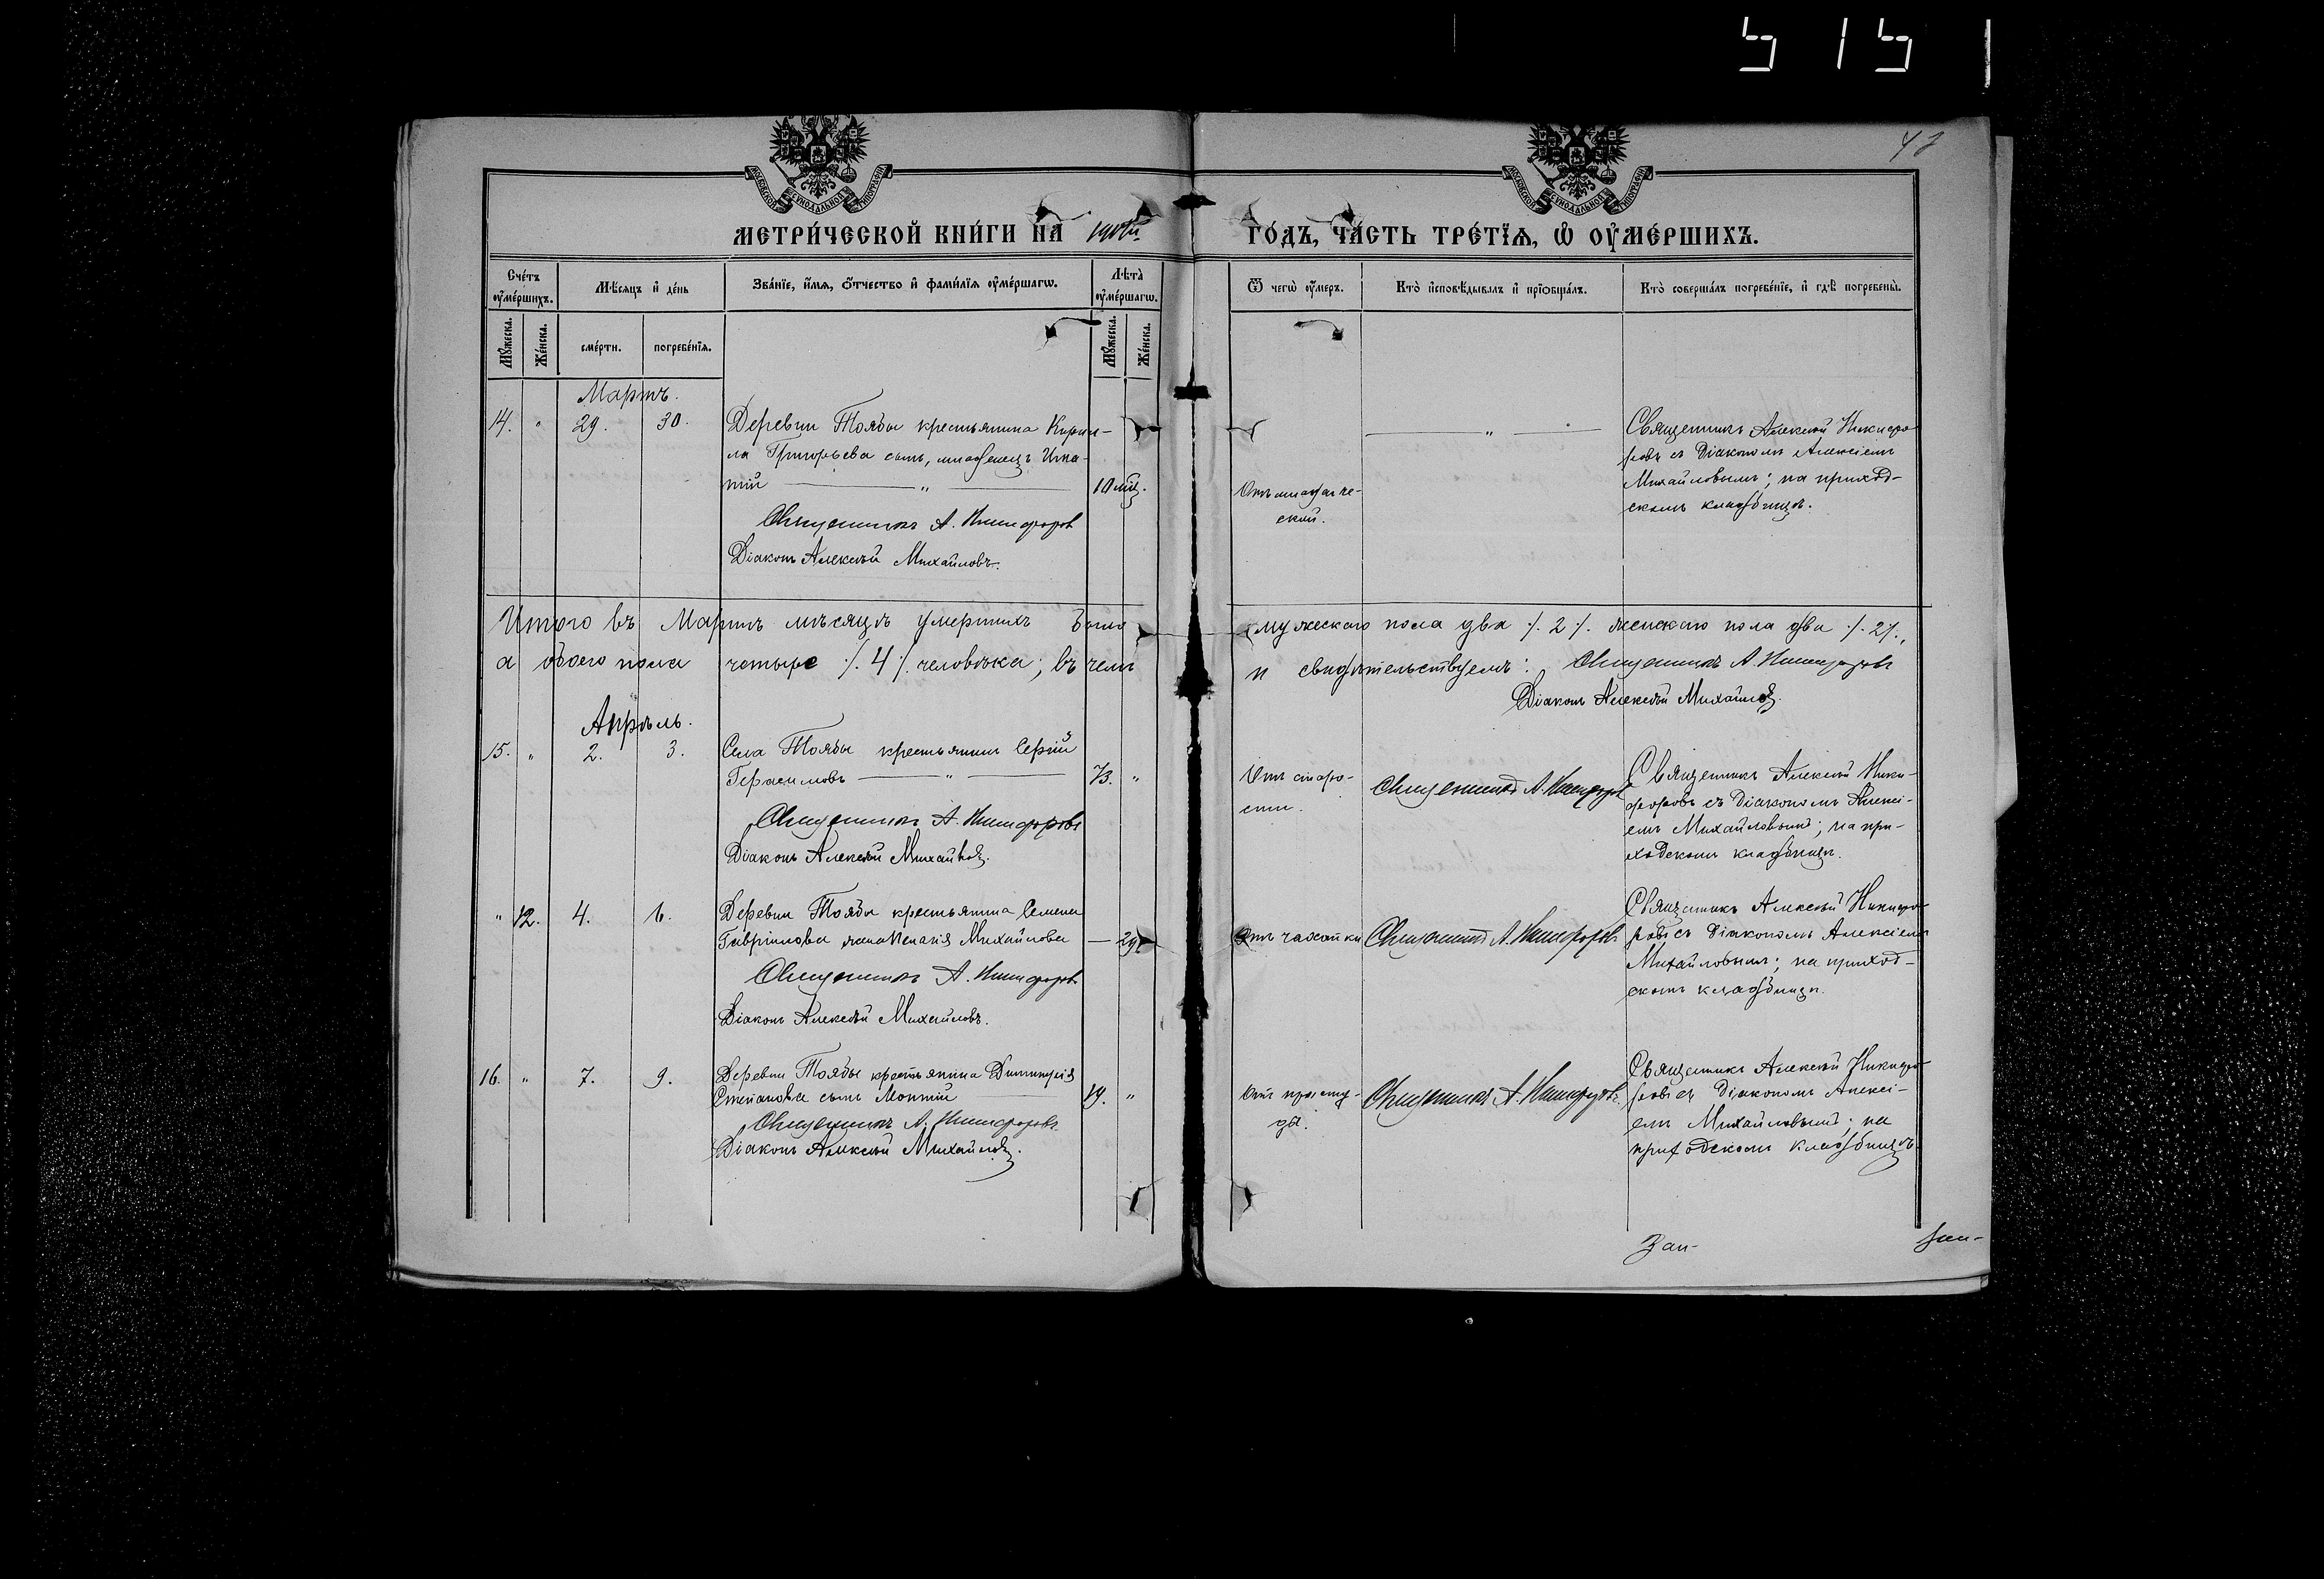 5151
47
МОСКОВСКОЙ СѴНОДАЛЬНОЙ ТИПОГРАФІИ
МОСКОВСКОЙ СѴНОДАЛЬНОЙ ТИПОГРАФІИ
МЕТРИ́ЧЕСКОЙ КНИ́ГИ НА
ГО́ДЪ, ЧА́СТЬ ТРЕ́ТЇѦ, Ѡ҆ ОУ҆МЕ́РШИХЪ.
Сче́тъ оу҆ме́ршихъ.
Мѣ́сяцъ и҆ де́нь
Зва́нїе, и҆́мѧ, ѻ҆́тчество и҆ фами́лїѧ оу҆ме́ршагѡ.
Лѣ́та оу҆ме́ршагѡ.
Ѿ чегѡ̀ оу҆́меръ.
Кто̀ и҆сповѣ́дывалъ и҆ прїѡбща́лъ.
Кто̀ соверша́лъ погребе́нїе, и҆ гдѣ̀ погребены̀.
Мꙋ́жеска.
Же́нска.
сме́рти.
погребе́нїѧ.
Мꙋ́жеска.
Же́нска.
Мартъ.
14. " 29. 30.
Деревни Тоябы крестьянина Кирил-
ла Григорьева сынъ, младенецъ Игна-
тій — " — 10 мѣц.
Священникъ А. Никифоровъ
Діаконъ Алексѣй Михайловъ.
Отъ младенче-
ской.
— " —
Священникъ Алексѣй Никифо-
ровъ съ Діакономъ Алексіемъ
Михайловымъ; на приход-
скомъ кладбищѣ.
Итого въ Мартѣ мѣсяцѣ умершихъ было
мужескаго пола два /. 2 /. женскаго пола два /. 2 /.,
а обоего пола четыре /. 4 /. человѣка; въ чемъ
и свидѣтельствуемъ: Священникъ А. Никифоровъ
Діаконъ Алексѣй Михайловъ.
Апрѣль.
15. " 2. 3.
Села Тоябы крестьянинъ Сергій
Герасимовъ — " — 73. "
Священникъ А. Никифоровъ
Діаконъ Алексѣй Михайловъ.
Отъ старо-
сти.
Священникъ А. Никифоровъ
Священникъ Алексѣй Ники-
форовъ съ Діакономъ Алексі-
емъ Михайловымъ; на при-
ходскомъ кладбищѣ.
" 12. 4. 6.
Деревни Тоябы крестьянина Семена
Гавріилова жена Михайлова — 29.
Священникъ А. Никифоровъ
Діаконъ Алексѣй Михайловъ.
Отъ чахотки
Священникъ А. Никифоровъ
Священникъ Алексѣй Никифо-
ровъ съ Діакономъ Алексіемъ
Михайловымъ; на приход-
скомъ кладбищѣ.
16. " 7. 9.
Деревни Тоябы крестьянина Димитрія
Степанова сынъ — 19. "
Священникъ А. Никифоровъ
Діаконъ Алексѣй Михайловъ.
Отъ просту-
ды.
Священникъ А. Никифоровъ.
Священникъ Алексѣй Никифо-
ровъ съ Діакономъ Алексі-
емъ Михайловымъ; на
приходскомъ кладбищѣ.